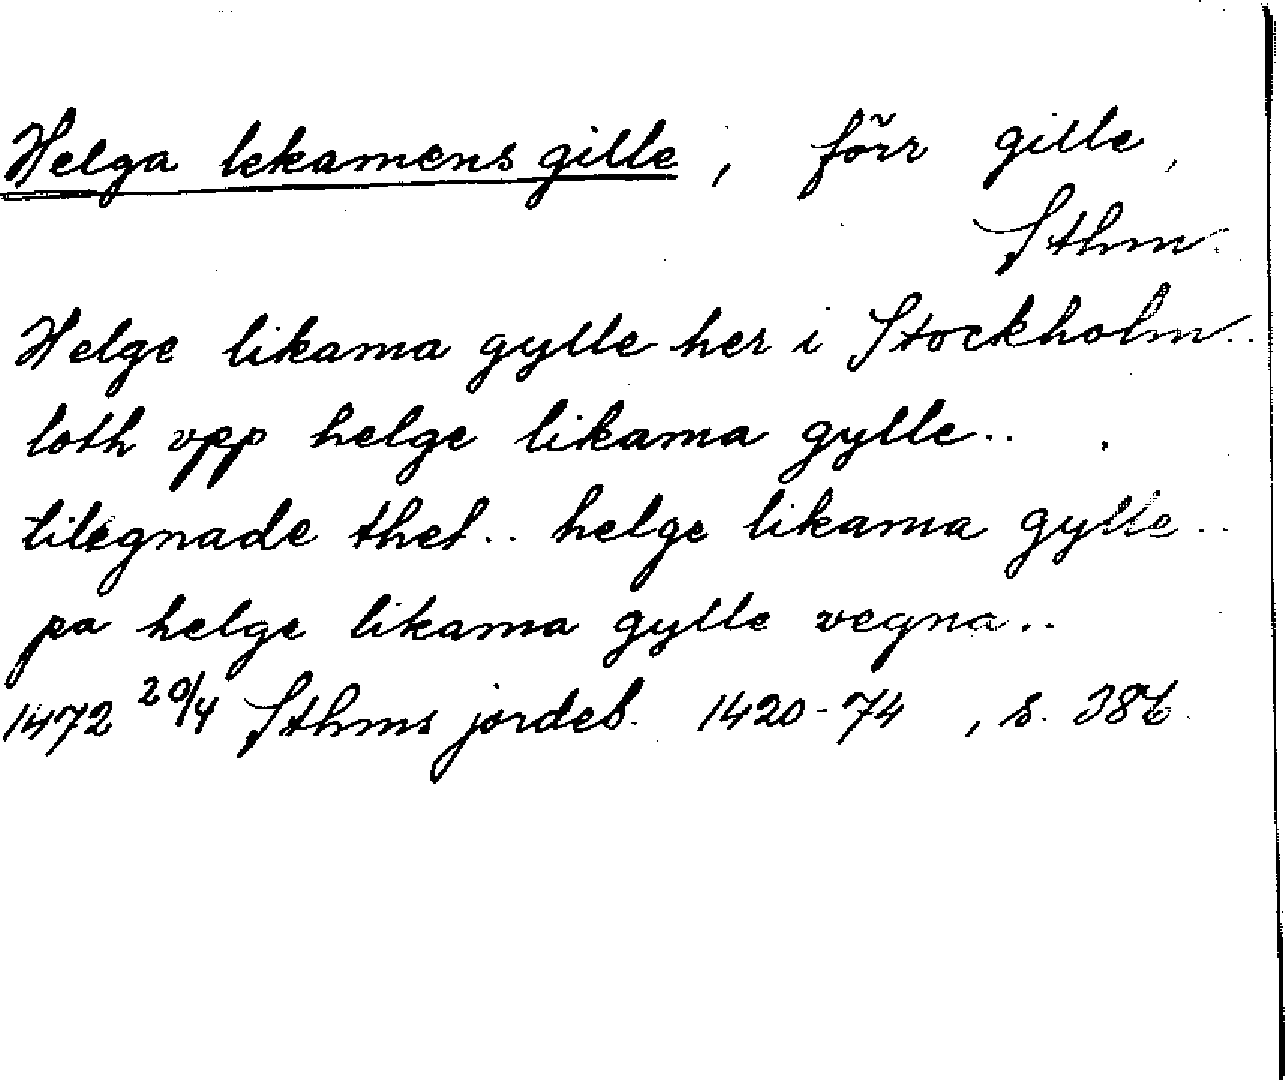 Helga lekamens gille, förr gille,
Sthm.
Helge likama gylle her i Stockholm..
loth vpp helge likama gylle..
tilegnade thet.. helge likama gylle..
pa helge likama gylle vegna..
1472 20/4 Sthms jordeb. 1420-74, s. 386.